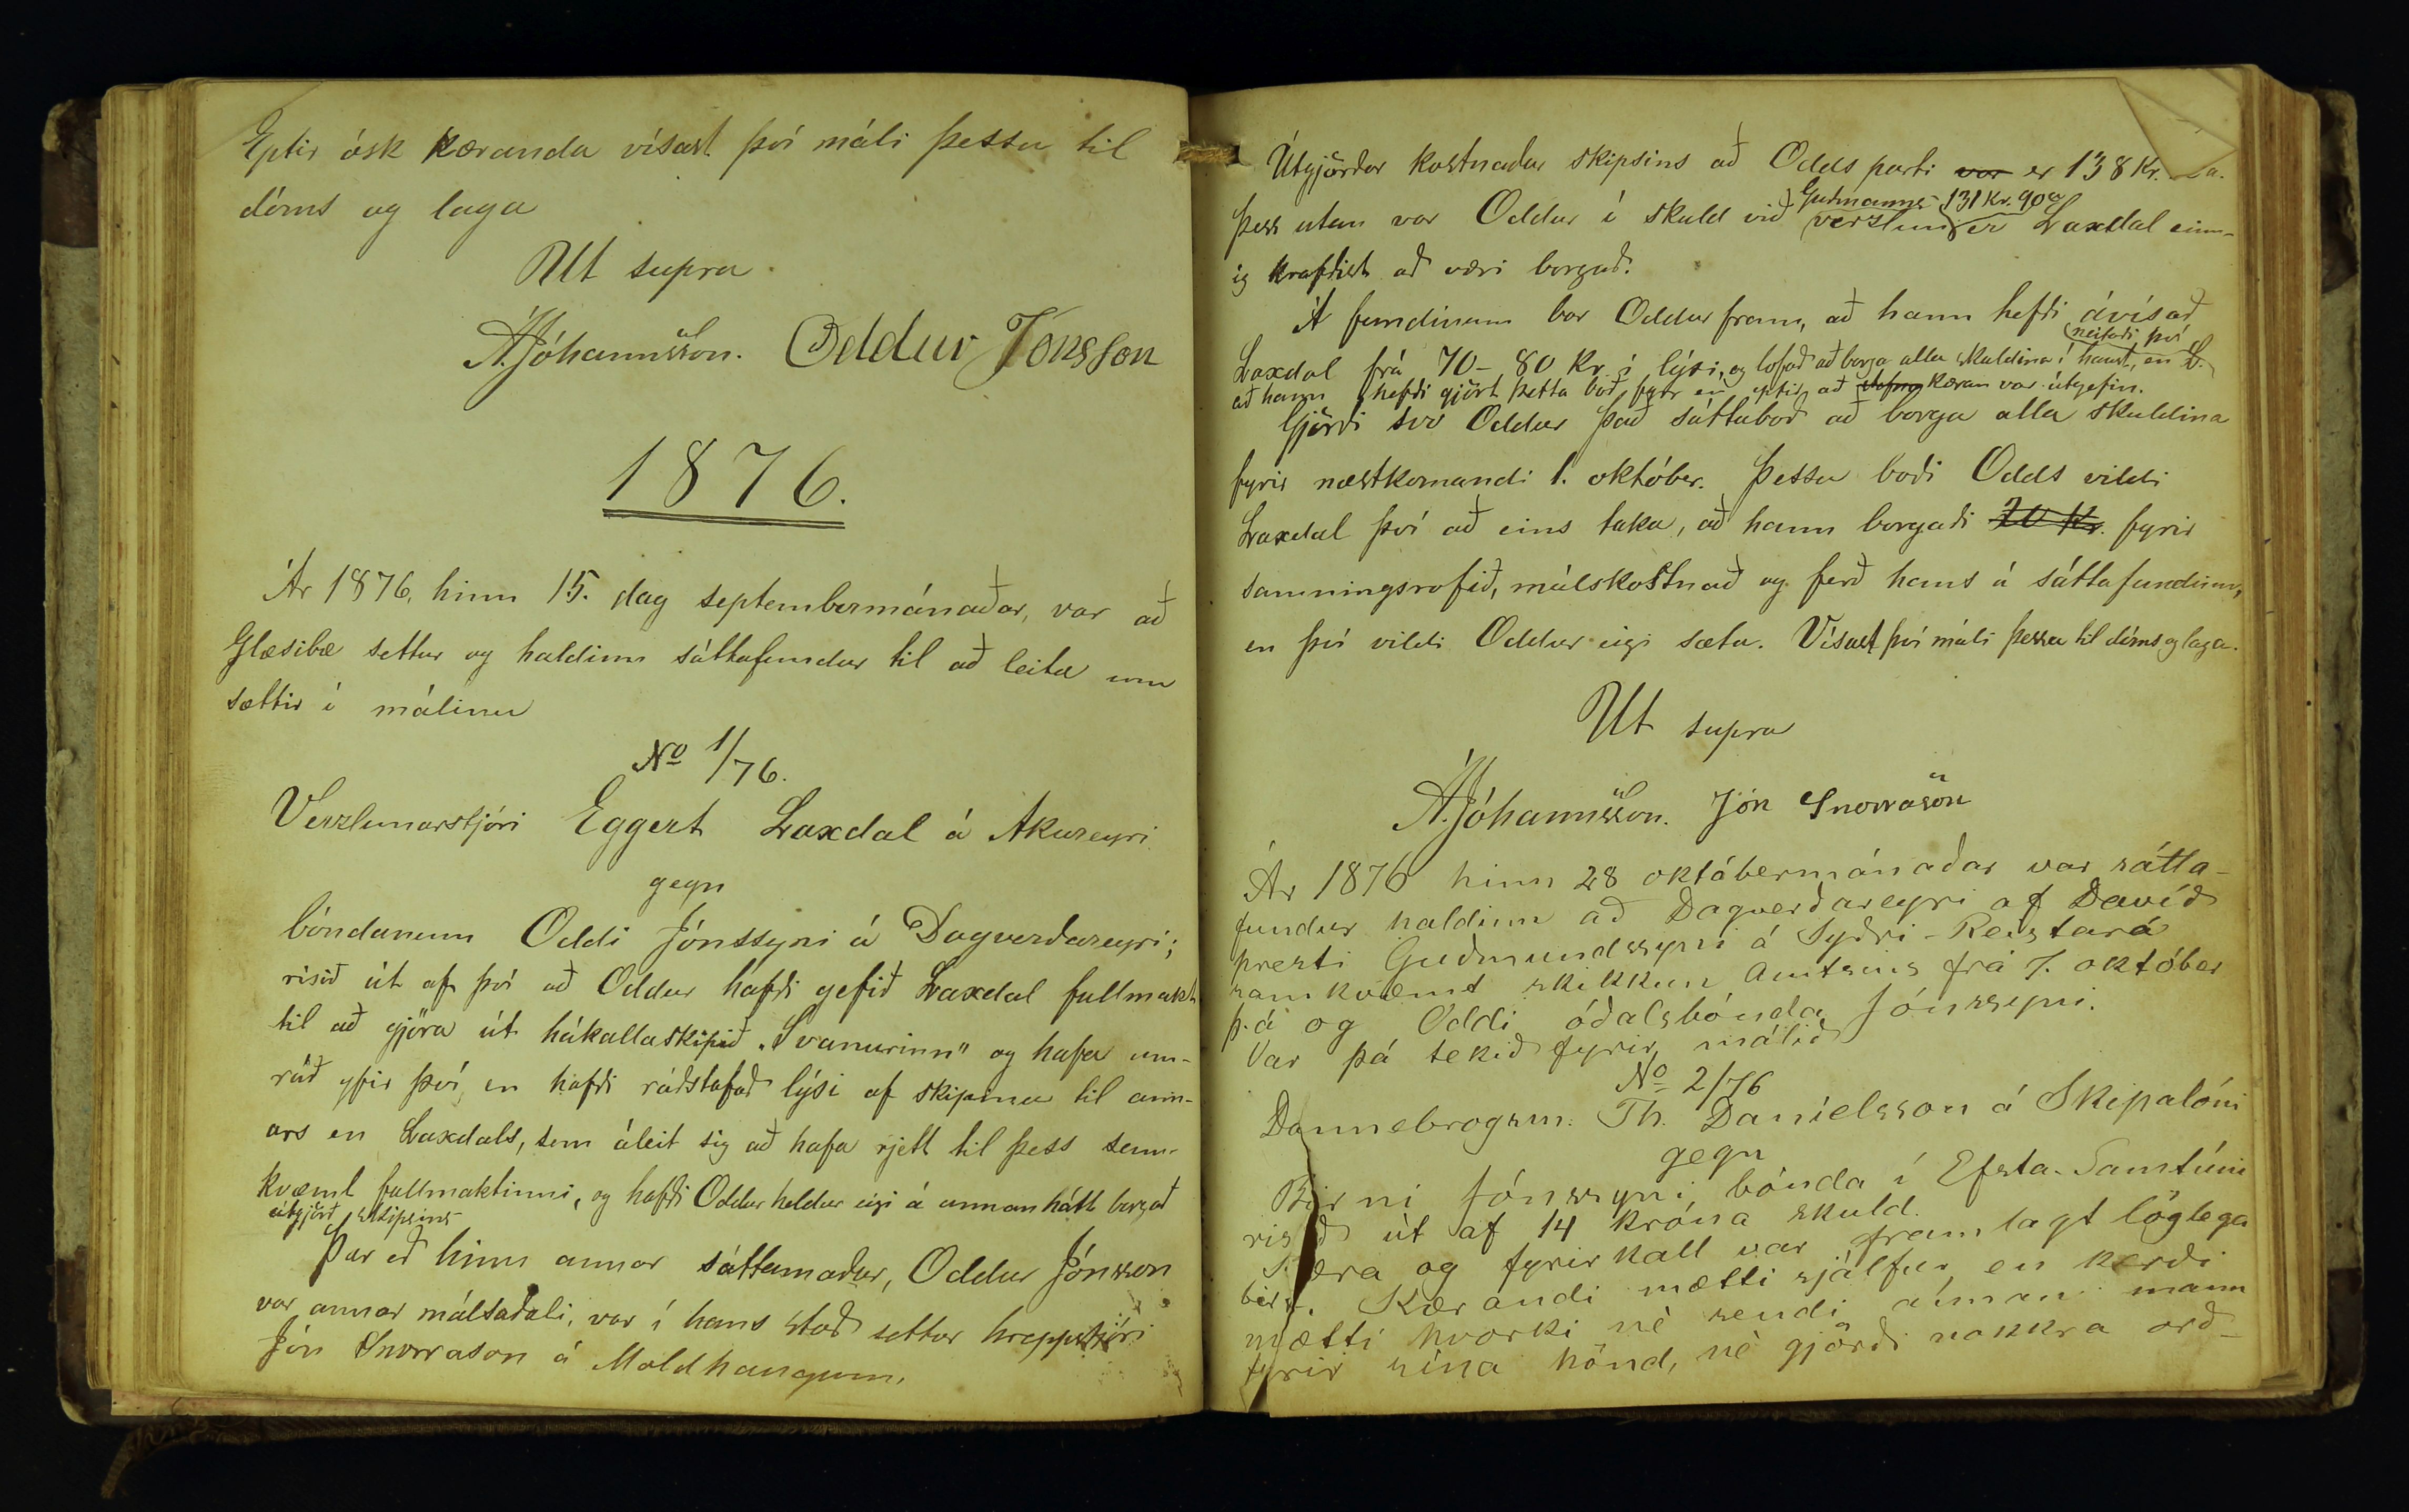 Eptir ósk kæranda vísast því máli þessu til
dóms og laga
Ut supra
Á. Jóhannsson. Oddur Jónsson
1876.
Ár 1876, hinn 15. dag septembermánaðar, var að
Glæsibæ settur og haldinn sáttafundur til að leita um
sættir í málinu
No 1/76.
Verzlunarstjóri Eggert Laxdal á Akureyri
gegn
bóndanum Oddi Jónssyni á Dagverðareyri;
risið út af því að Oddur hafði gefið Laxdal fullmakt
til að gjöra út hákallaskipið „Svanurinn" og hafa um-
ráð yfir því, en hafði ráðstafað lýsi af skipinu til ann-
ars en Laxdals, sem áleit sig að hafa rjett til þess sam-
kvæmt fullmaktinni, og hafði Oddur heldur eigi á annan hátt borgað
útgjörð skipsins
Þar eð hinn annar sáttamaður, Oddur Jónsson
var annar málsaðali, var í hans stað settur hreppstjóri
Jón Snorrason á Moldhaugum.
Útgjörðar kostnaður skipsins að Odds parti var er 138 Kr.
Guðmanns 131 Kr. 90a
Þess utan var Oddur í skuld við verzlun er Laxdal einn-
ig krafðist að væri borgað.
Á fundinum bar Oddur fram, að hann hefði ávísað
neitaði því
Laxdal frá 70-80 Kr. í lýsi, og lofað að borga alla skuldina í haust, en L.
að hann hefði gjört þetta boð fyr en eptir að kæran var útgefin.
Gjörði svo Oddur það sáttaboð að borga alla skuldina
fyrir næstkomandi 1. október. Þessu boði Odds vildi
Laxdal því að eins taka, að hann borgaði 20 Kr. fyrir
samningsrofið, málskostnað og ferð hans á sáttafundinn,
en því vildi Oddur eigi sæta. Vísast því máli þessu til dóms og laga.
Ut supra
Á. Jóhannsson. Jón Snorrason
Ár 1876 hinn 28 októbermánaðar var sátta-
fundur haldinn að Dagverðareyri af Davíð
presti Guðmundssyni á Syðri-Reistará
samkvæmt skikkun Amtsins frá 7. október
þ.á og Oddi óðalsbónda Jónssyni.
Var þá tekið fyrir málið
No 2/76
Dannebrogsm. Th. Daníelsson á Skipalóni
gegn
Birni Jónssyni, bónda í Efsta-Samtúni
risið út af 14 króna skuld.
Kæra og fyrirkall var framlagt löglega
birt. Kærandi mætti sjálfur, en kærði
mætti hvorki nè sendi annan mann
fyrir sína hönd, nè gjörði nokkra orð-